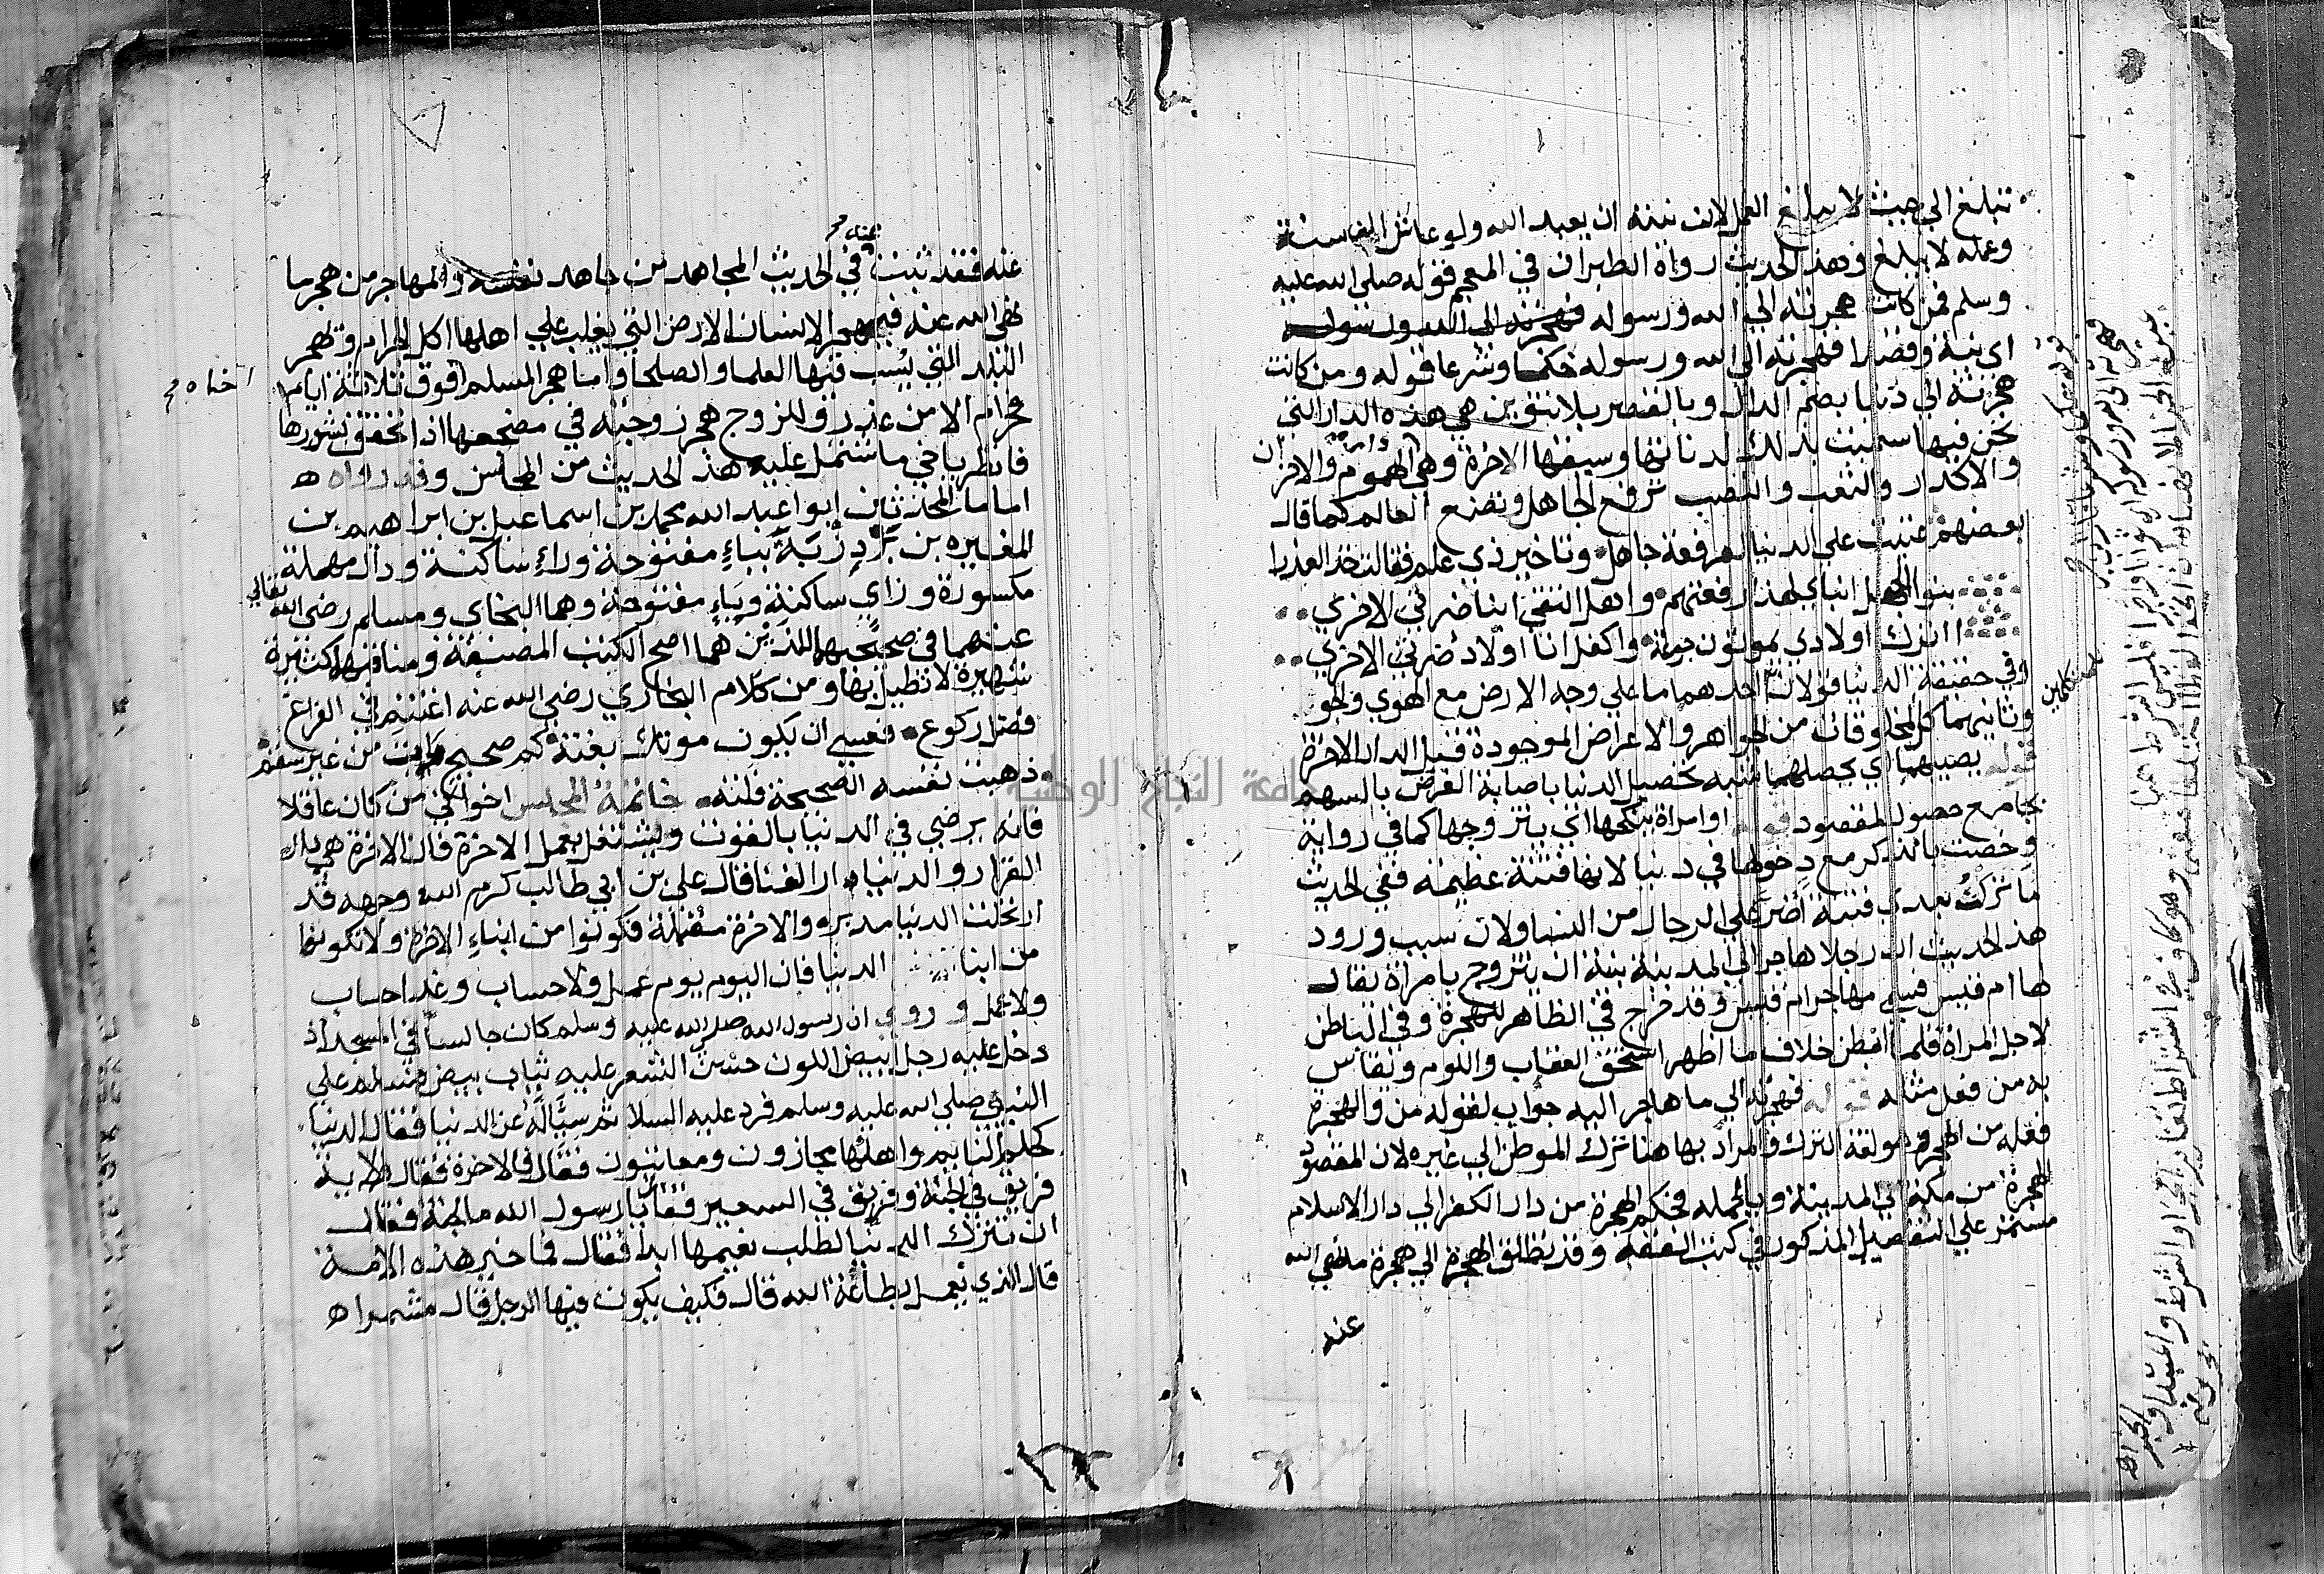 تبلغ الي حيث لا يبلغ العمل لان نيته ان يعبد الله ولو عاش الف سنة
وعمله لا يبلغ وهذ الحديث رواه الطبراني في المعجم قوله صلى الله عليه
وسلم فمن كانت هجرته الي الله ورسوله فهجرته الى الله ورسوله
اي نية وقصدا فهجرته الي الله ورسوله حكما وشرعا قوله ومن كانت
هجرته الي دنيا بضم الدال وبالقصر بلا تنوين هي هذه الدار التي
نحن فيها سميت بذلك لدناتها وسبقها الاخرة وهي دار الهموم والاحزان
والاكدار والتعب والنصب ترفع الجاهل وتضع العالم كما قال
بعضهم عتبت على الدنيا لرفعة جاهل وتاخير ذي علم فقالت خذ العذرا
بنو الجهل ابناي لهذا رفعتهم واهل التقي ابنا ضرتي الاخري
ااترك اولادي يموتون جوعة واكفل انا اولاد ضرتي الاخري
وفي حقيقة الدنيا قولان احدهما ما علي وجه الارض مع الهوي والجو
وثانيهما كل المخلوقات من الجواهر والاعراض الموجودة قبل الدار الاخرة
قوله يصيبها اي يحصلها شبه تحصيل الدنيا باصابة الغرض بالسهم
بجامع حصول المقصود قوله او امراة ينكحها اي يتزوجها كما في رواية
وخصت بالذكر مع دخولها في دنيا لانها فتنة عظيمة ففي الحديث
ما تركت بعدي فتنة اضر علي الرجال من النسا ولان سبب ورود
هذ الحديث ان رجلا هاجر الي المدينة بنية ان يتزوج بامراة يقال
لها ام قيس فسمي مهاجر ام قيس وقد خرج في الظاهر للهجرة وفي الباطن
لاجل المراة فلما ابطن خلاف ما اظهر استحق العقاب واللوم ويقاس
به من فعل مثله قوله فهجرته الي ما هاجر اليه جواب لقوله من والهجرة
فعله من الهجر وهو لغة الترك والمراد بها هنا ترك الموطن الي غيره لان المقصود
الهجرة من مكة الي المدينة وبالجملة فحكم الهجرة من دار الكفر الي دار الاسلام
مستمر علي التفصيل المذكور في كتب الفقه وقد يطلق الهجرة الي هجرة ما نهى الله
عند
قوله حكما وشرعا
عنه فقد ثبت في الحديث المجاهد من جاهد نفسه والمهاجر من هجر ما
نهى الله عنه فيهجر الانسان الارض التي يغلب علي اهلها اكل الحرام وتهجر
البلد التي يسب فيها العلما والصلحا واما هجر المسلم فوق ثلاثة ايام
اخاه صح
فحرام الا من عذر وللزوج هجر زوجته في مضجعها اذا تحقق نشوزها
فانظر يا اخي ما شتمل عليه هذ الحديث من المحاسن وقد رواه
اماما المحدثين ابوا عبد الله محمد بن اسماعيل بن ابراهيم بن
المغيره بن بردزبة بباء مفتوحة وراء ساكنة ودال مهملة
مكسورة وزاي ساكنة وباء مفتوحة وهما البخاي ومسلم رضي الله تعالي
عنهما في صحيحيهما اللذين هما اصح الكتب المصنفة ومناقبها كثيرة
شهيرة لا نطيل بها ومن كلام البخاري رضي الله عنه اغتنم في الفراغ
فضل ركوع فعسي ان يكون موتك بغتة كم صحيح مات من غير سقم
ذهبت نفسه الصحيحة فلته خاتمة المجلس اخواني من كان عاقلا
فانه يرضي في الدنيا بالقوت ويشتغل بعمل الاخرة فان الاخرة هي دار
القرار والدنيا دار الفنا قال علي بن ابي طالب كرم الله وجهه قد
ارتحلت الدنيا مدبره والاخرة مقبلة فكونوا من ابناء الاخرة ولا تكونوا
من ابنا الدنيا فان اليوم يوم عمل ولا حساب وغدا حساب
ولا عمل وروى ان رسول الله صلى الله عليه وسلم كان جالسا في المسجد اذ
دخل عليه رجل ابيض اللون حسن الشعر عليه ثياب بيض فسلم علي
النبي صلى الله عليه وسلم فرد عليه السلام ثم سئاله عن الدنيا فقال الدنيا
كحلم النايم واهلها مجازون ومعاقبون فقال والاخرة فقال الابد
فريق في الجنة وفريق في السعير فقال يا رسول الله ما الجنة فقال
ان تترك الدنيا لطلب نعيمها ابدا فقال فما خير هذه الامة
قال الذي يعمل بطاعة الله قال فكيف يكون فيها الرجل قال مشمرا